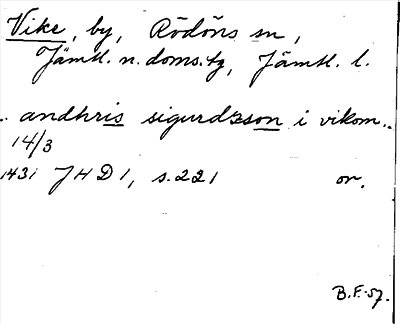 Vike, by, Rödöns sn,
Jämtl. n. doms.tg, Jämtl. l.
.. andhris sigurdzson i vikom..
14/3
1431 JHD 1, s. 221 or.
B.F.-57.